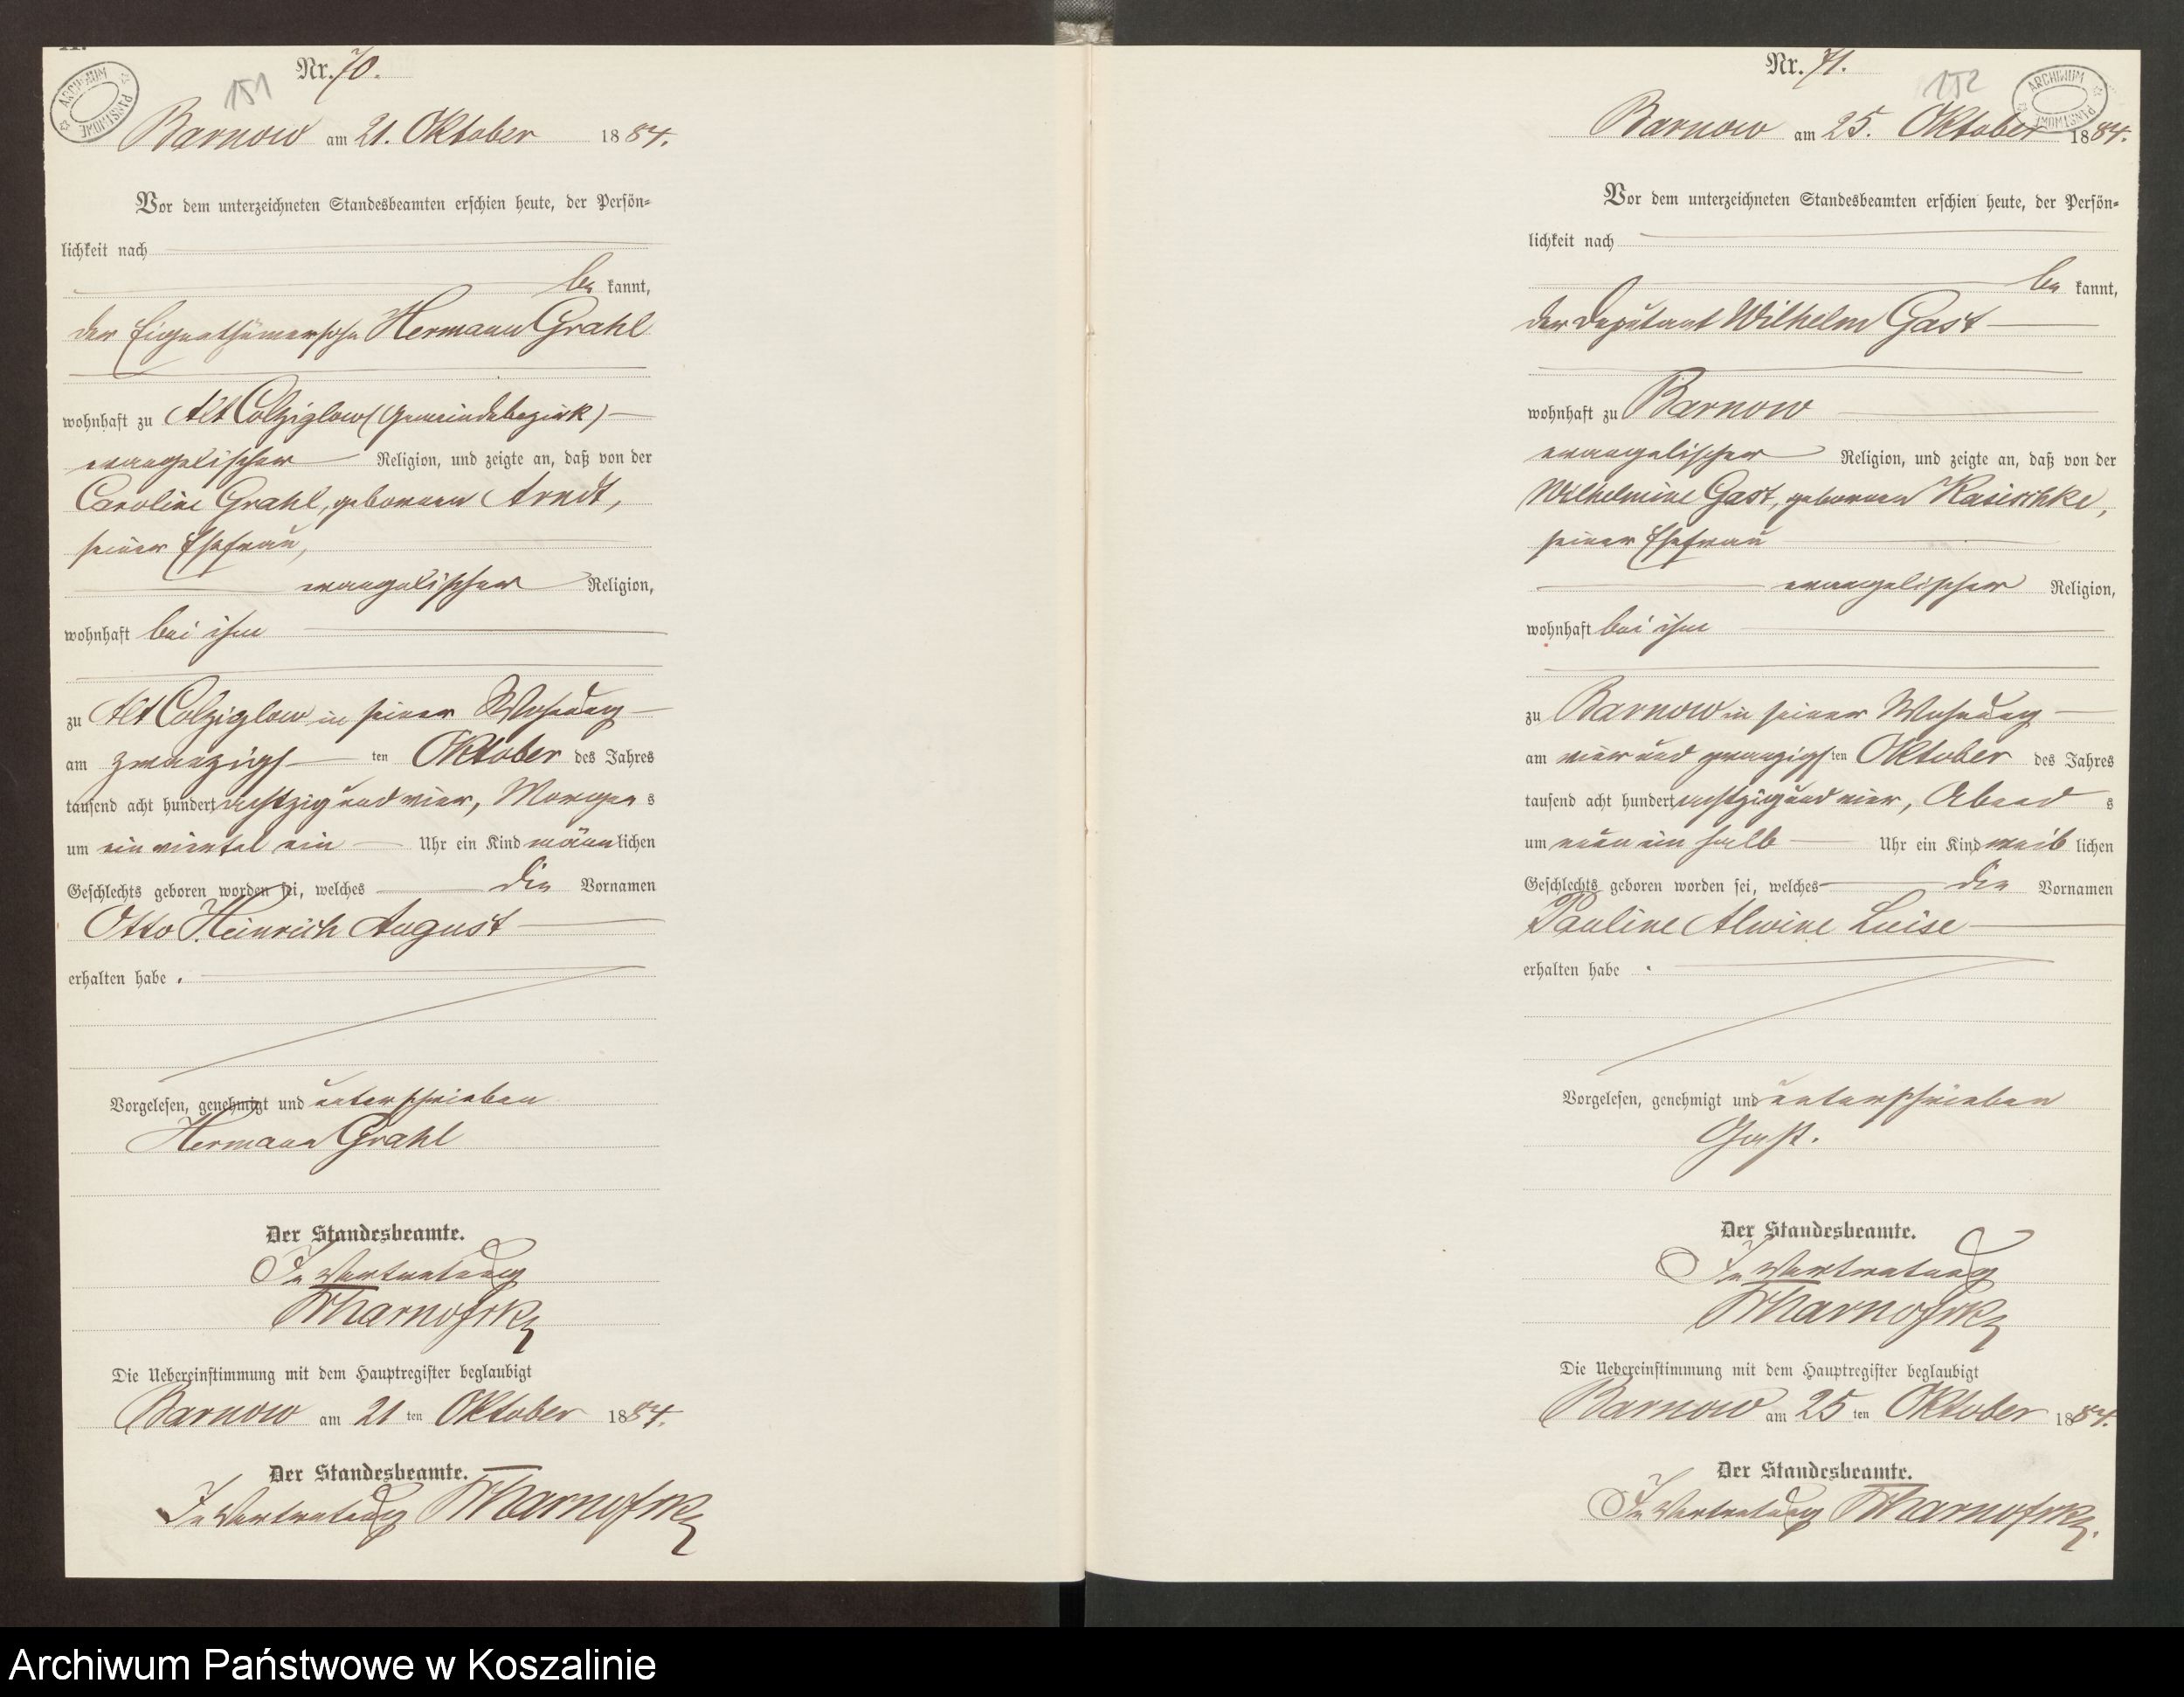 Nr. 70.
151
ARCHIWUM PAŃSTWOWE
Barnow am 21. Oktober 1884.
Vor dem unterzeichneten Standesbeamten erschien heute, der Persön-
lichkeit nach
be kannt,
der Eigenthümersohn Hermann Grahl
wohnhaft zu Alt Colziglow (Gemeindebezirk)
evangelischer Religion, und zeigte an, daß von der
Caroline Grahl, geborenen Arndt,
seiner Ehefrau,
evangelischer Religion,
wohnhaft bei ihm
zu Alt Colziglow in seiner Wohnung
am zwanzigs ten Oktober des Jahres
tausend acht hundert achtzig und vier, Morgen s
um ein viertel ein Uhr ein Kind männ lichen
Geschlechts geboren worden sei, welches die Vornamen
Otto Heinrich August
erhalten habe .
Vorgelesen, genehmigt und unterschrieben
Hermann Grahl
Der Standesbeamte.
In Vertretung
Die Uebereinstimmung mit dem Hauptregister beglaubigt
Barnow am 21 ten Oktober 1884.
Der Standesbeamte.
In Vertretung
Nr. 71.
152
ARCHIWUM PAŃSTWOWE
Barnow am 25. Oktober 1884.
Vor dem unterzeichneten Standesbeamten erschien heute, der Persön-
lichkeit nach
be kannt,
der Deputant Wilhelm Gast
wohnhaft zu Barnow
evangelischer Religion, und zeigte an, daß von der
Wilhelmine Gast, geborenen Rasischke,
seiner Ehefrau
evangelischer Religion,
wohnhaft bei ihm
zu Barnow in seiner Wohnung
am vier und zwanzigs ten Oktober des Jahres
tausend acht hundert achtzig und vier, Abend s
um neun ein halb Uhr ein Kind weib lichen
Geschlechts geboren worden sei, welches die Vornamen
Pauline Alwine Luise
erhalten habe .
Vorgelesen, genehmigt und unterschrieben
Gast.
Der Standesbeamte.
In Vertretung
Die Uebereinstimmung mit dem Hauptregister beglaubigt
Barnow am 25 ten Oktober 1884.
Der Standesbeamte.
In Vertretung
Archiwum Państwowe w Koszalinie